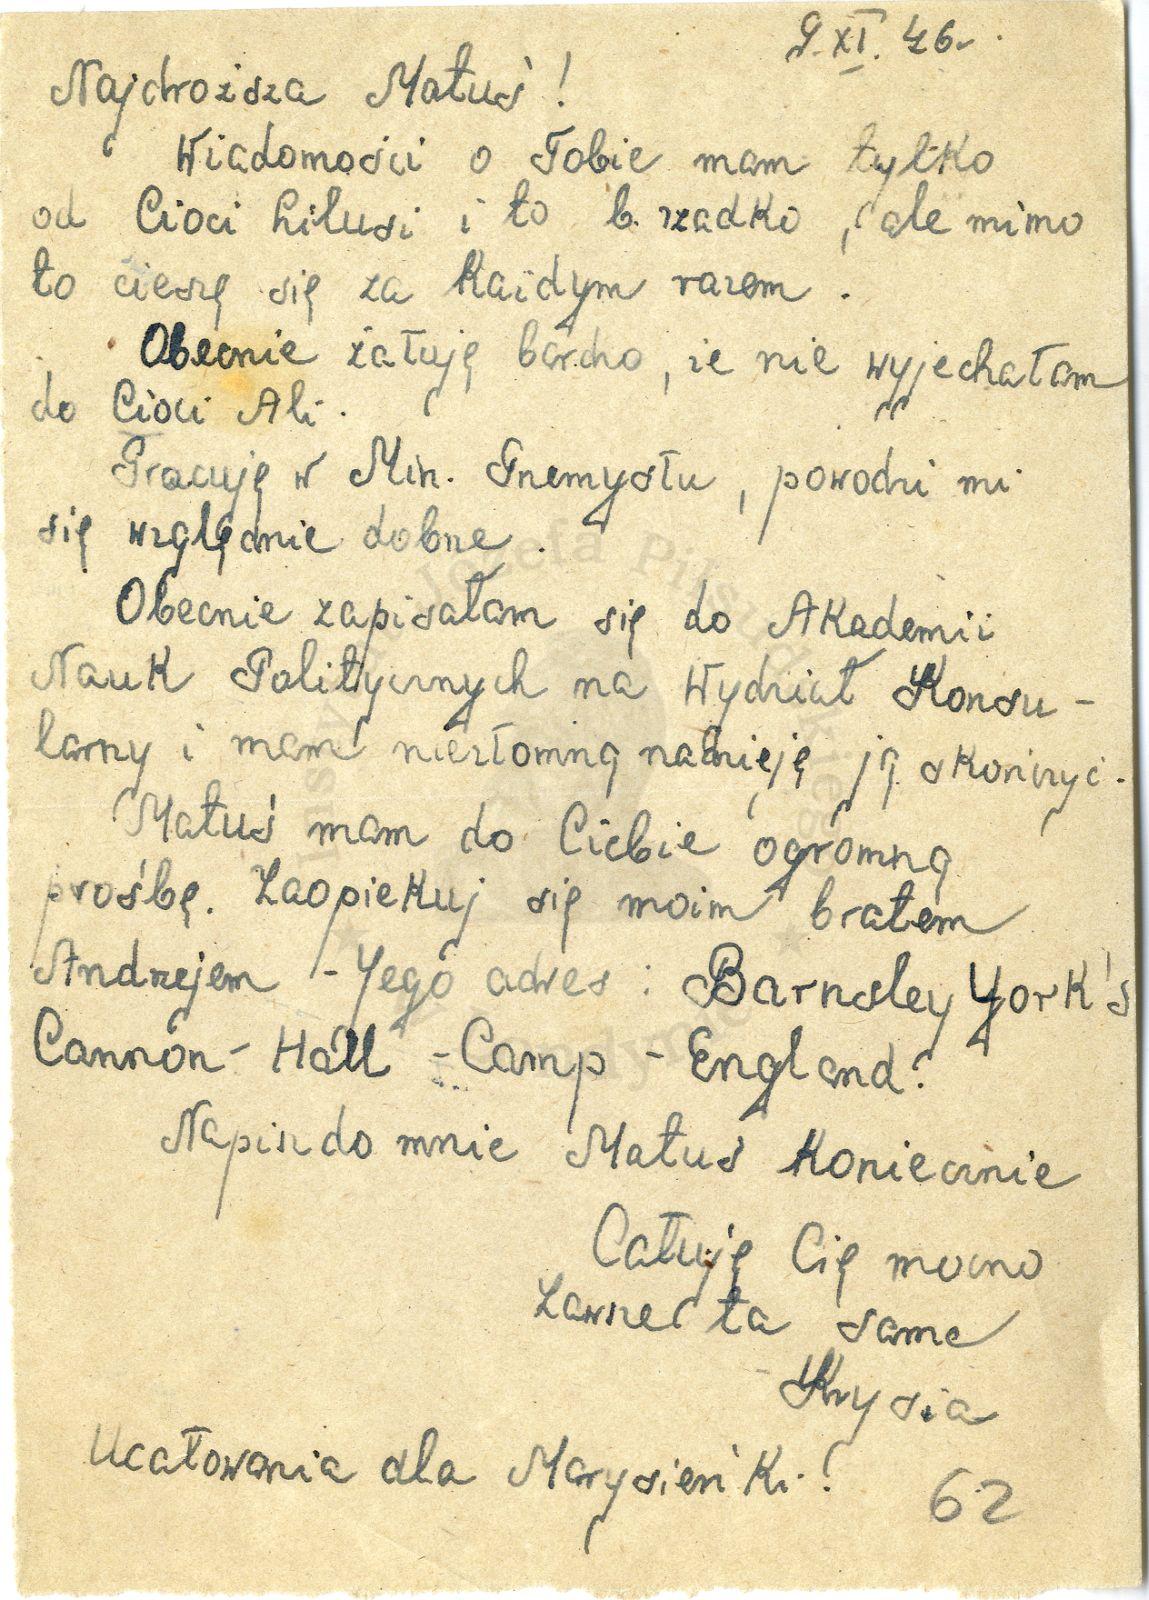 9.XI.46r.
Najdroższa Matuś!
Wiadomości o Tobie mam tylko
od Cioci Lilusi i to b. rzadko, ale mimo
to cieszę się za każdym razem.
Obecnie żałuję bardzo, że nie wyjechałam
do Cioci Ali.
Pracuję w Min. Przemysłu, powodzi mi
się względnie dobrze.
Obecnie zapisałam się do Akademii
Nauk Politycznych na Wydział Konsu-
larny i mam niezłomną nadzieję ją skończyć.
Matuś mam do Ciebie ogromną
prośbę. Zaopiekuj się moim bratem
Andrzejem - Jego adres: Barnsley York's
Cannon - Hall - Camp - England!
Napisz do mnie Matuś koniecznie
Całuję Cię mocno
Zawsze ta sama
Krysia
Ucałowania dla Marysieńki!
62